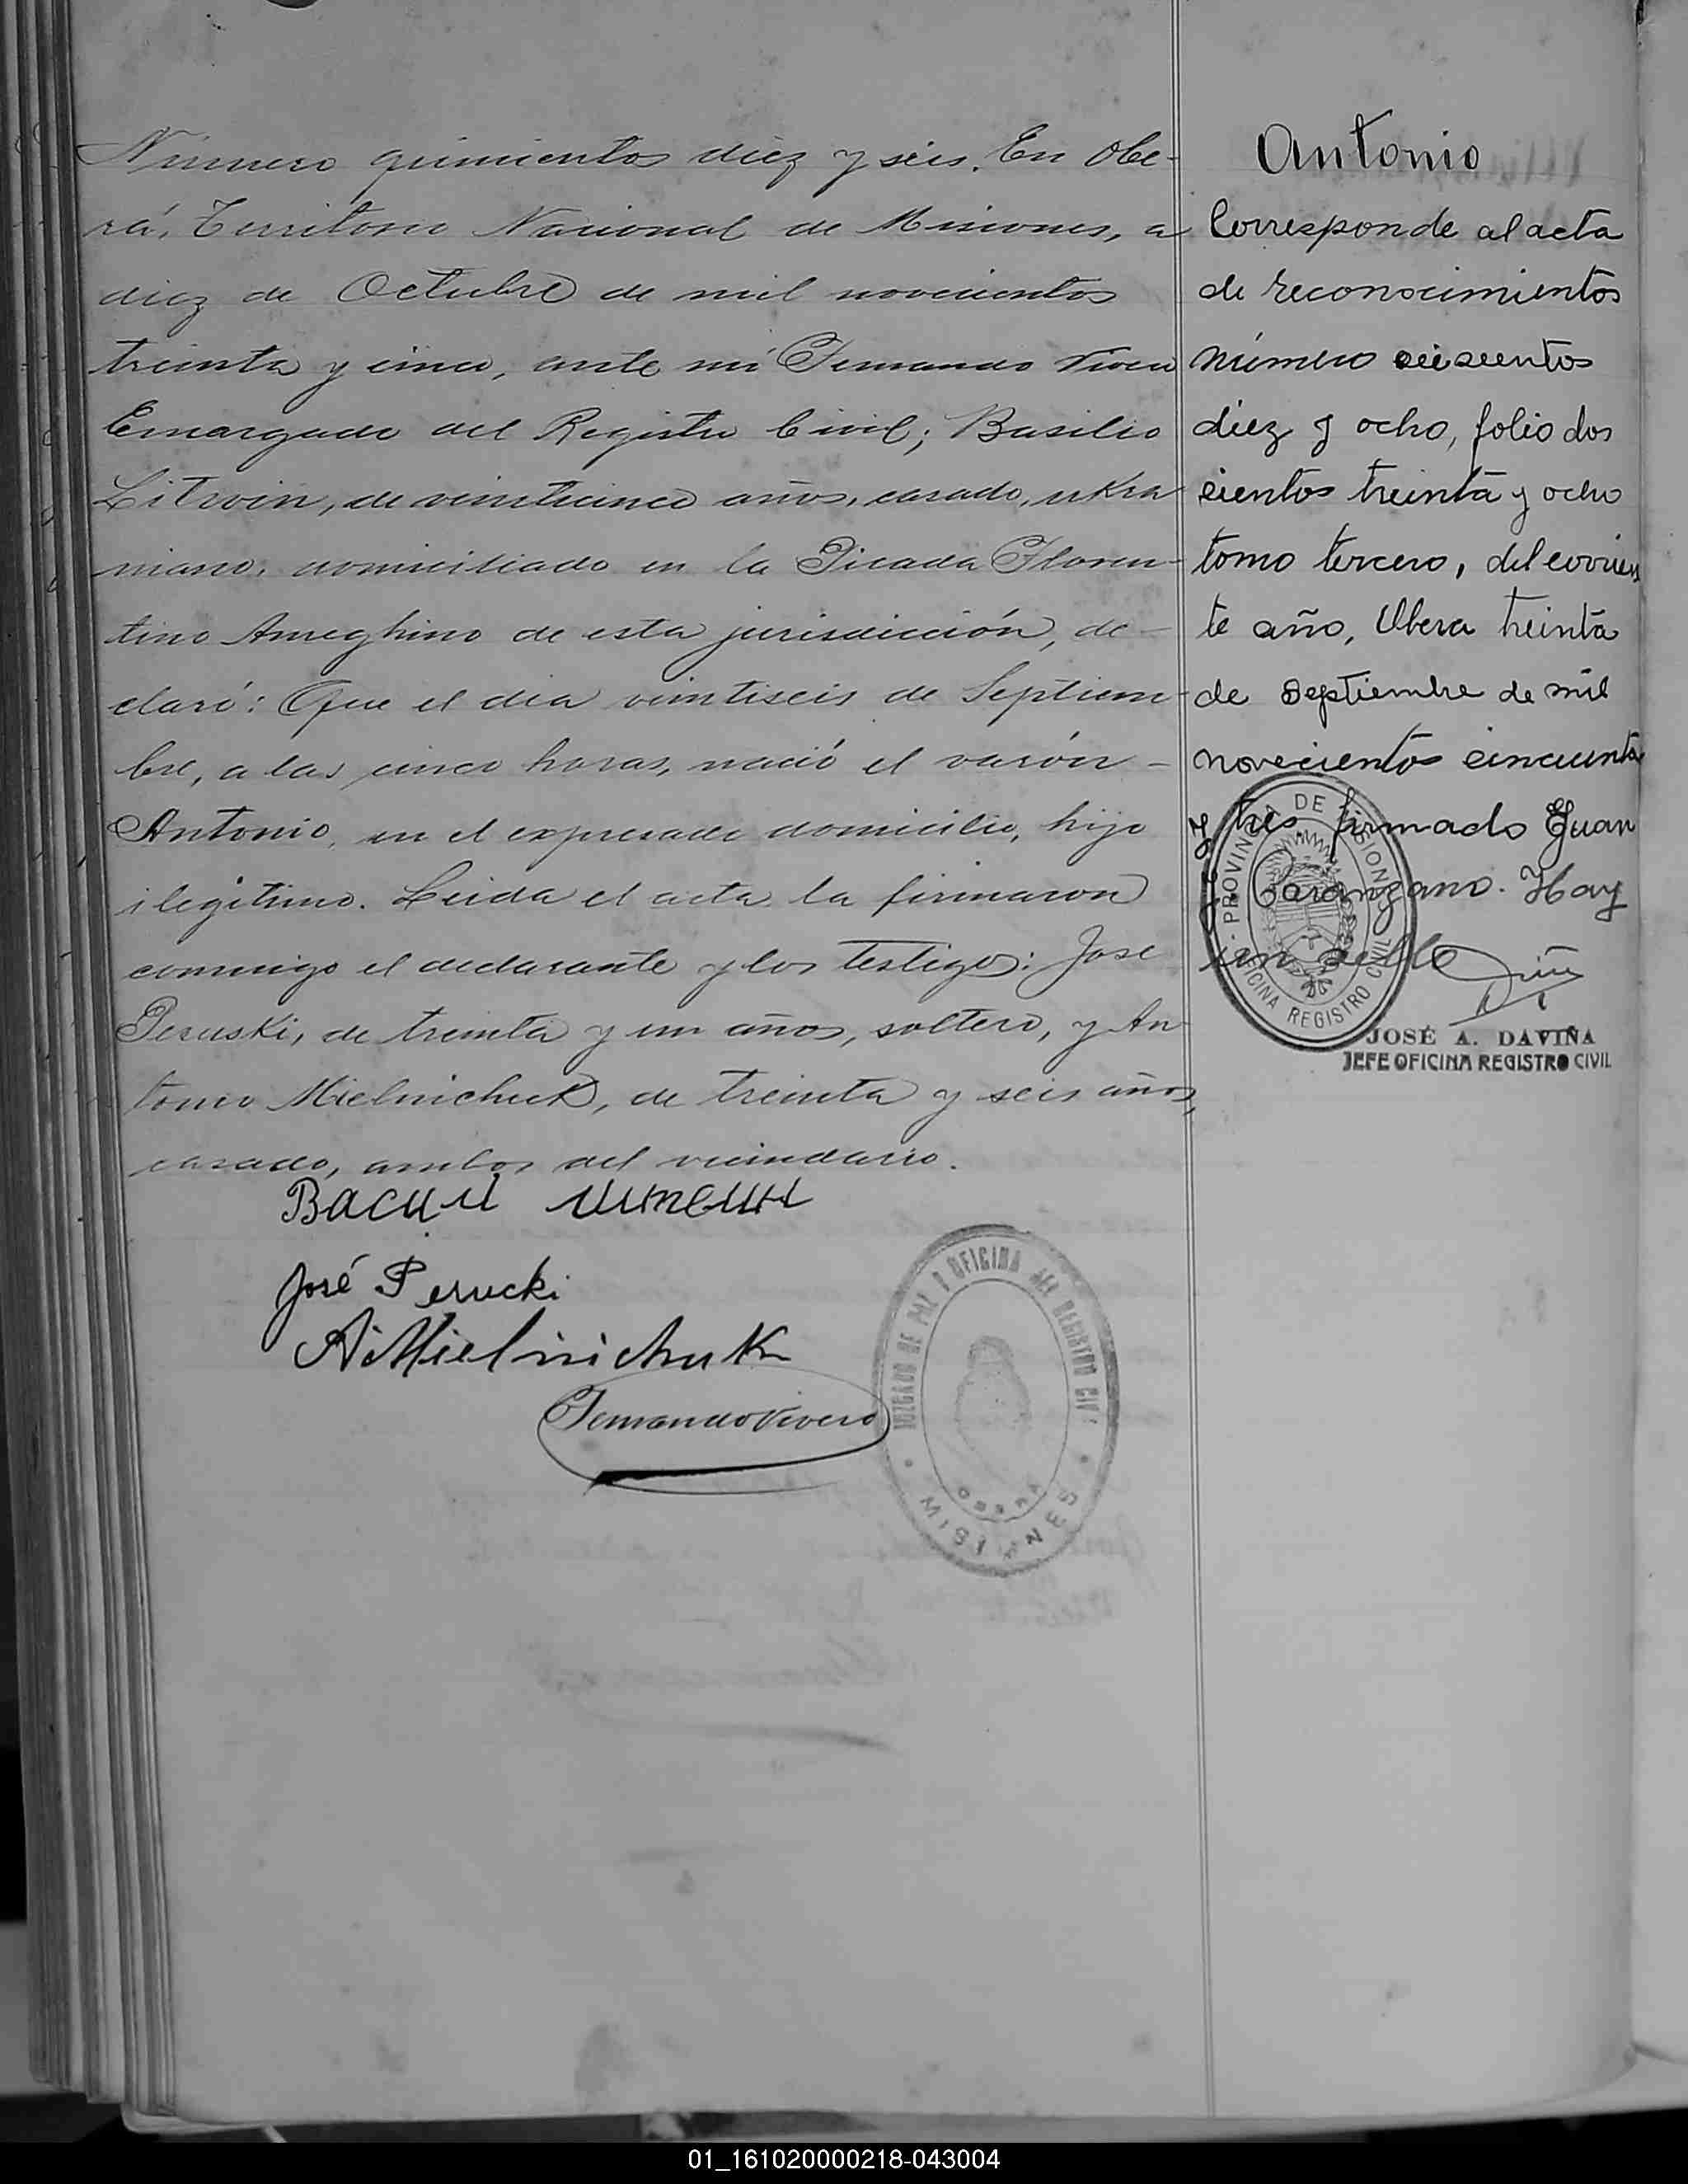 Número quinientos diez y seis. En Obe-
rá, Territorio Nacional de Misiones, a
diez de Octubre de mil novecientos
treinta y cinco, ante mí Fernando Vivero
Encargado del Registro Civil; Basilio
Litwin, de veinticinco años, casado, ukra
niano, domiciliado en la Picada Floren-
tino Ameghino de esta jurisdicción, de-
claró: Que el día veintiseis de Septiem-
bre, a las cinco horas, nació el varón -
Antonio, en el expresado domicilio, hijo
ilegítimo. Leída el acta la firmaron
conmigo el declarante y los testigos: José
Peruski, de treinta y un años, soltero, y An
tonio Mielnichuk, de treinta y seis años,
casado, ambos del vecindario.
José Perucki
A. Mielnichuk
Fernando Vivero
JUZGADO DE PAZ Y OFICINA DEL REGISTRO CIVIL
OBERÁ
MISIONES
Antonio
Corresponde al acta
de reconocimientos
número seiscientos
diez y ocho, folio dos
cientos treinta y ocho
tomo tercero, del corrien
te año, Obera treinta
de Septiembre de mil
novecientos cincuenta
y tres firmado Juan
Hay
un sello
PROVINCIA DE MISIONES
OFICINA REGISTRO CIVIL
JOSÉ A. DAVIÑA
JEFE OFICINA REGISTRO CIVIL
01_161020000218-043004